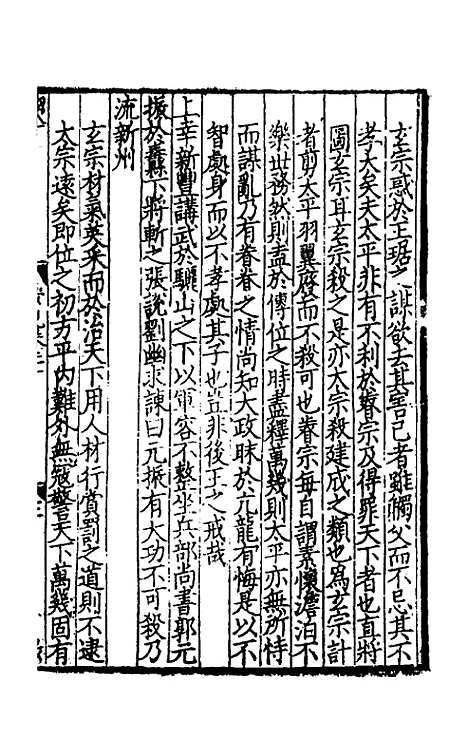 玄宗惑於王琚之謀欲去其害己者雖觸父而不忌其不
孝大矣夫太平非有不利於睿宗及得罪天下者也直將
圖玄宗耳玄宗殺之是亦太宗殺建成之類也為玄宗計
者剪太平羽翼廢而不殺可也睿宗每自謂素懷澹泊不
樂世務然則盍於傳位之時盡釋萬幾則太平亦無所恃
而謀亂乃有眷眷之情尚知大政昧於亢龍有悔是以不
智處身而以不孝處其子也豈非後王之戒哉
上幸新豐講武於驪山之下以軍容不整坐兵部尚書郭元
振於纛下將斬之張說劉幽求諫曰元振有大功不可殺乃
流新州
玄宗材氣英乎而於治天下用人材行賞罰之道則不逮
太宗遠矣即位之初方平內難外無寇警天下萬幾固有